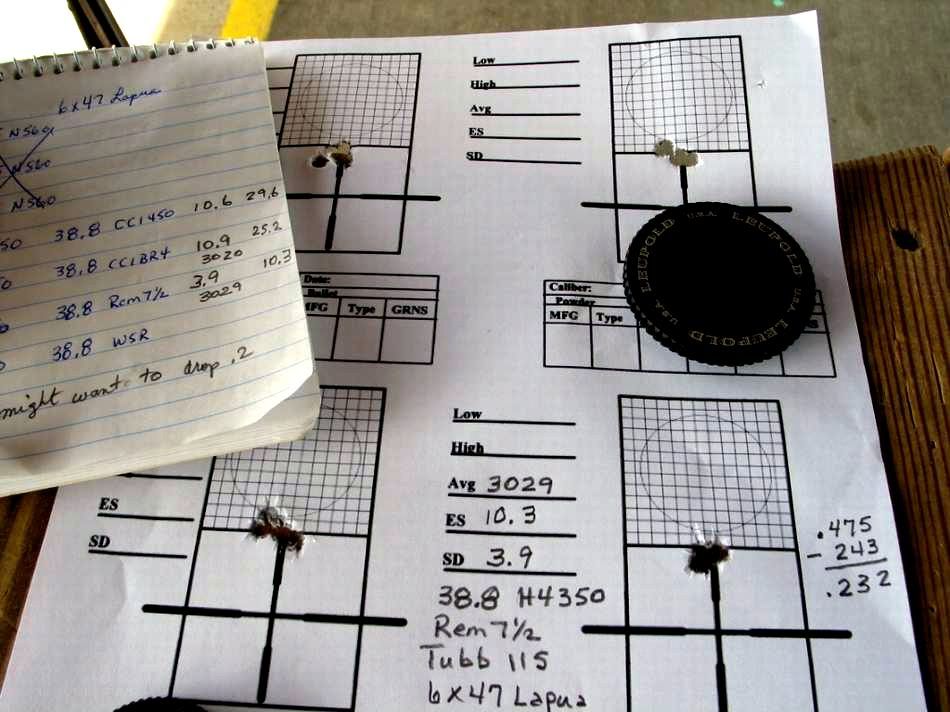 6x47 Lapua
N560
N560
N560
38.8 CCI450 10.6 29.6
38.8 CCIBR4 10.9 25.2
3020
38.8 Rem 7½ 3.9 10.3
3029
38.8 WSR
might want to drop .2
Low
High
Avg
ES
SD
Date:
Bullet
MFG Type GRNS
Caliber:
Powder
MFG Type
LEUPOLD U.S.A. LEUPOLD U.S.A. LEUPOLD U.S.A.
ES
SD
Low
High
Avg 3029
ES 10.3
SD 3.9
38.8 H4350
Rem 7½
Tubb 115
6x47 Lapua
.475
- 243
.232